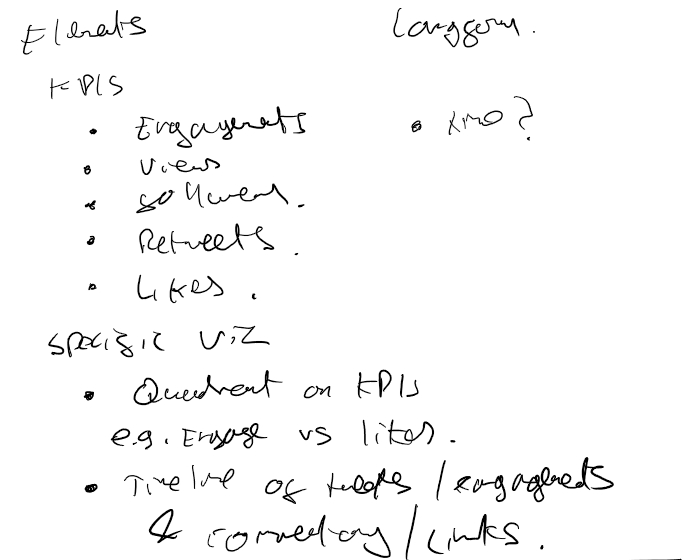 Elements
KPIS
• Engagements
• Views
• followers.
• Retweets.
• Likes.
Specific Viz
• Quadrant on KPIS
e.g. Engage vs likes.
• Timeline of tweets / engagements
& commentary / Links.
Long form.
• XMO?